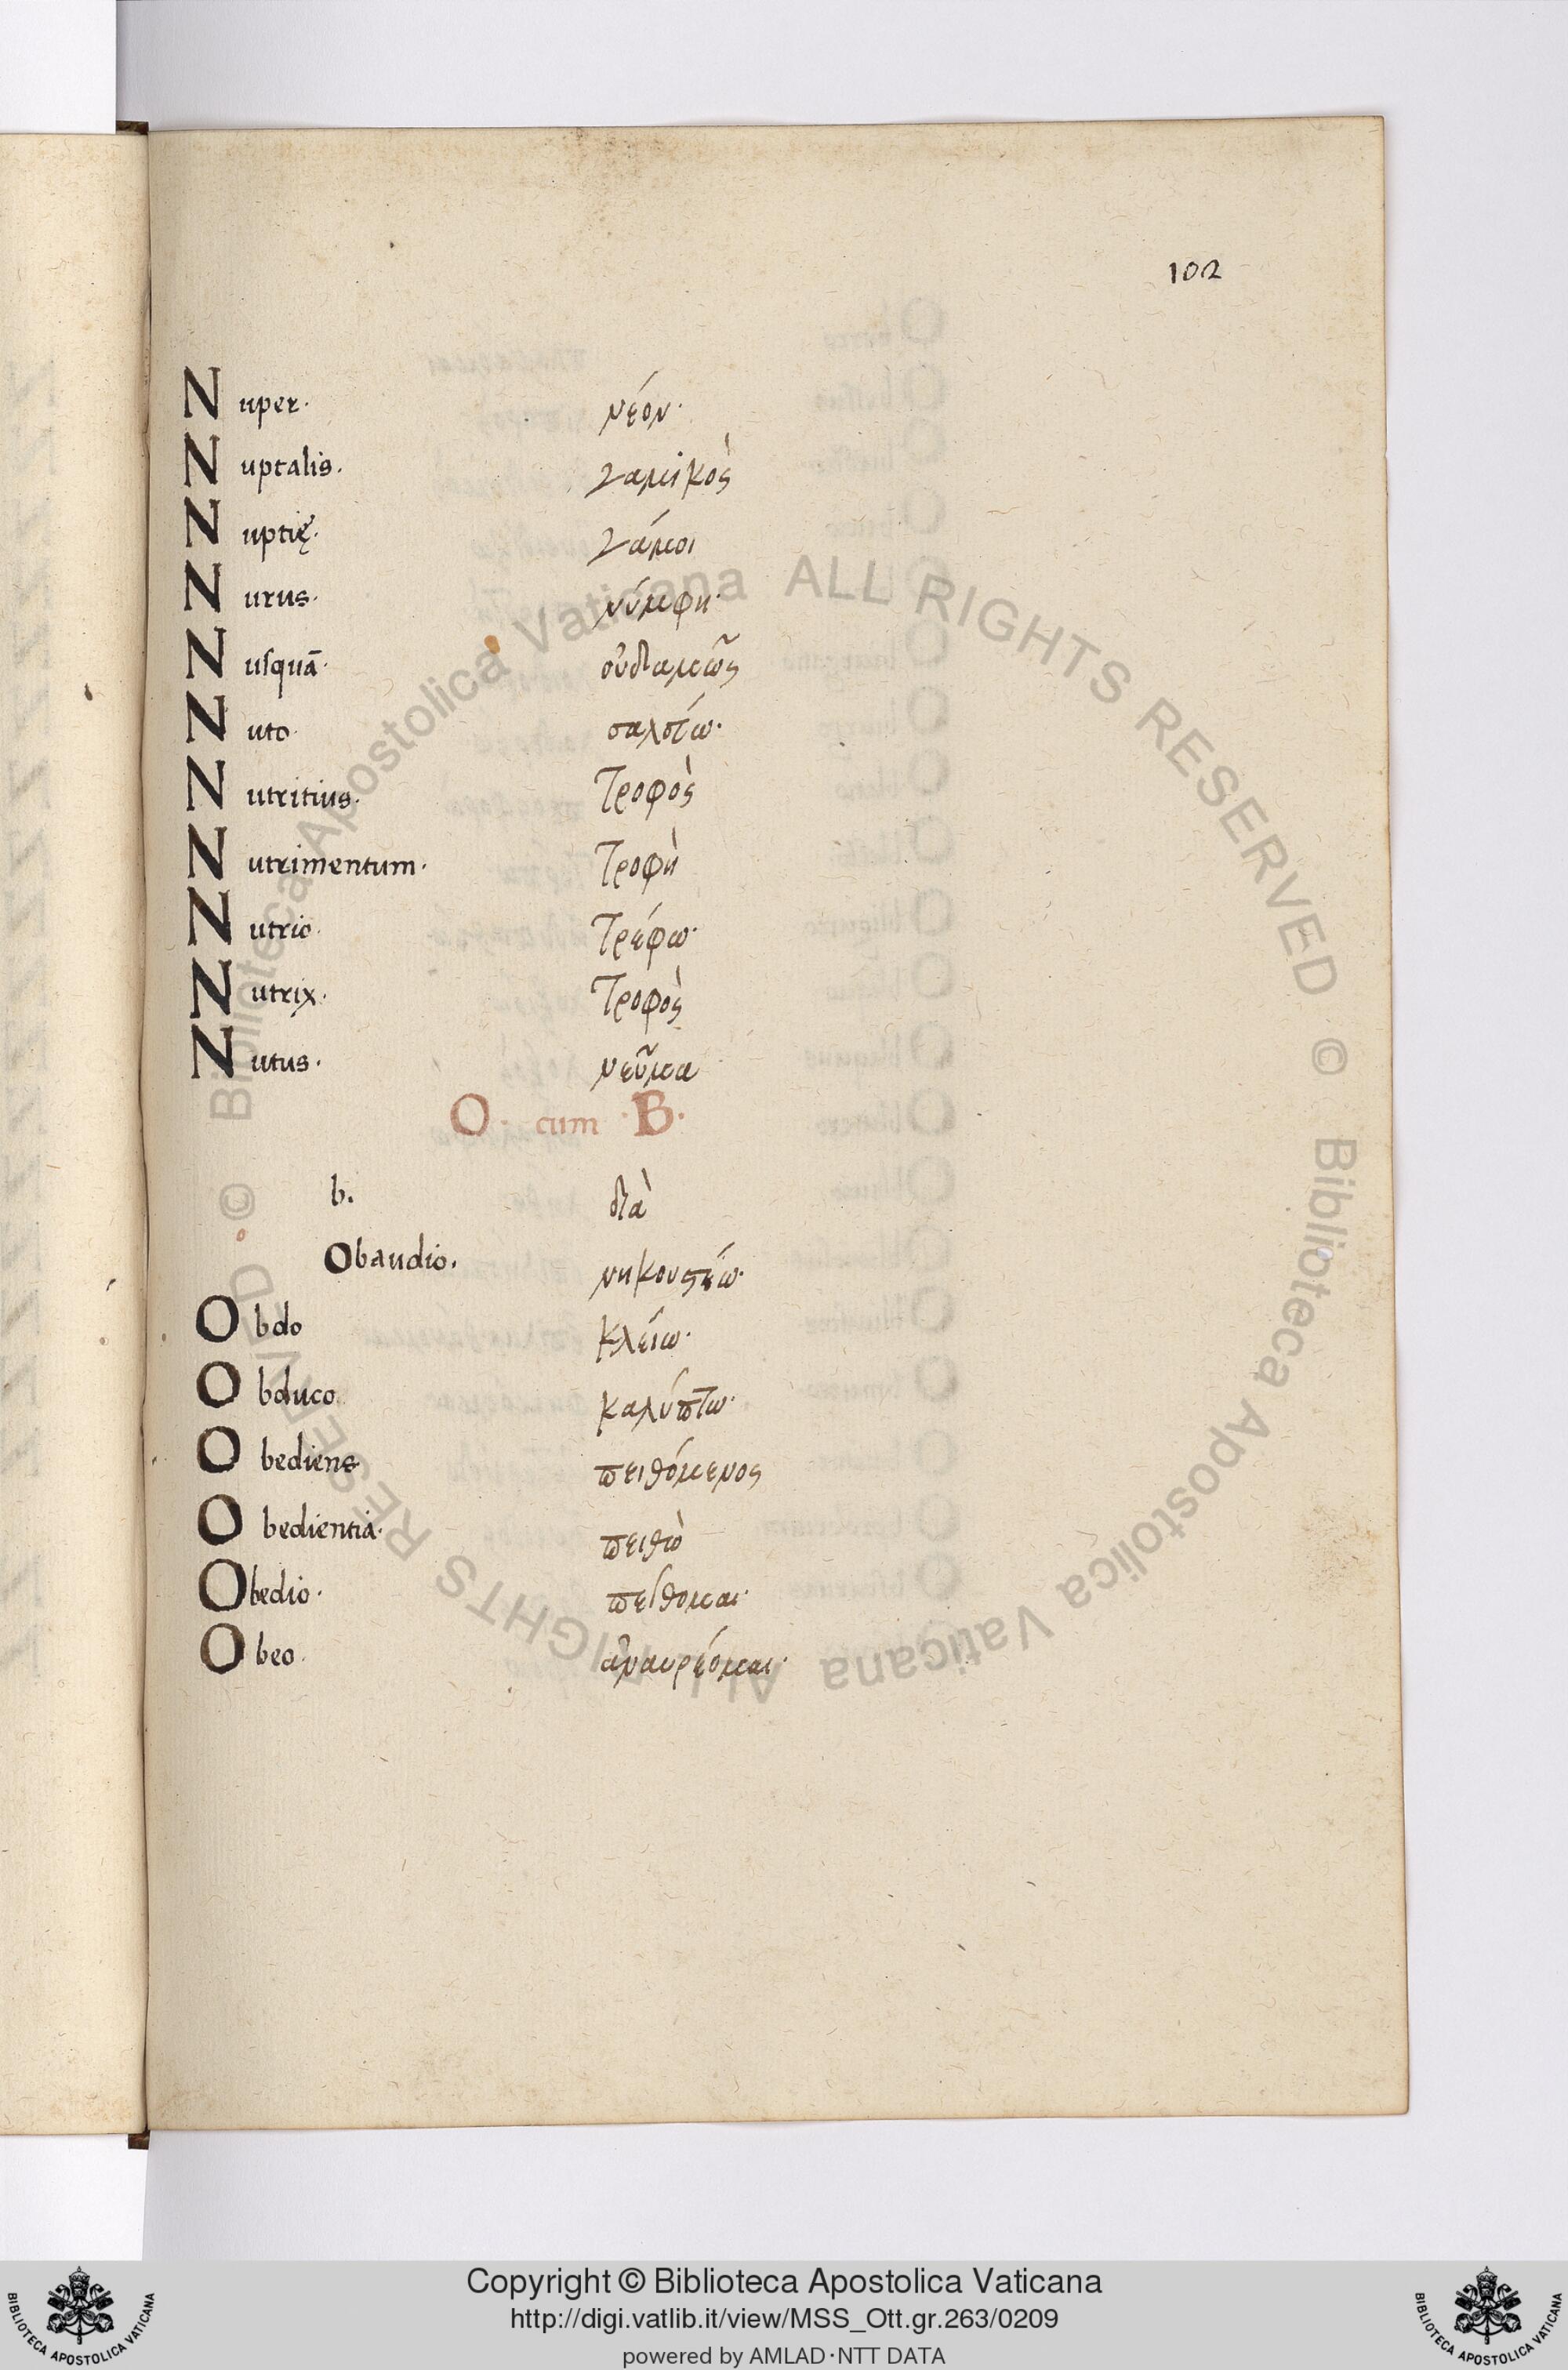 102
Nuper· νέον·
Nuptalis. γαμικὸς
Nuptię· γάμοι
Nurus· νύμφη·
Nusquã· οὐδαμῶς
Nuto·
Nutritius· τροφὸς
Nutrimentum· τροφὴ
Nutrio· τρέφω·
Nutrix· τροφὸς
Nutus· νεῦμα
O· cum ·B·
b. διὰ
Obaudio.
Obdo κλείω·
Obduco καλύπτω·
Obediens πειθόμενος
Obedientia· πειθὼ
Obedio· πείθομαι·
Obeo·
Biblioteca Apostolica Vaticana ALL RIGHTS RESERVED © Biblioteca Apostolica Vaticana ALL RIGHTS RESERVED ©
BIBLIOTECA APOSTOLICA VATICANA
Copyright © Biblioteca Apostolica Vaticana
http://digi.vatlib.it/view/MSS_Ott.gr.263/0209
powered by AMLAD·NTT DATA
BIBLIOTECA APOSTOLICA VATICANA